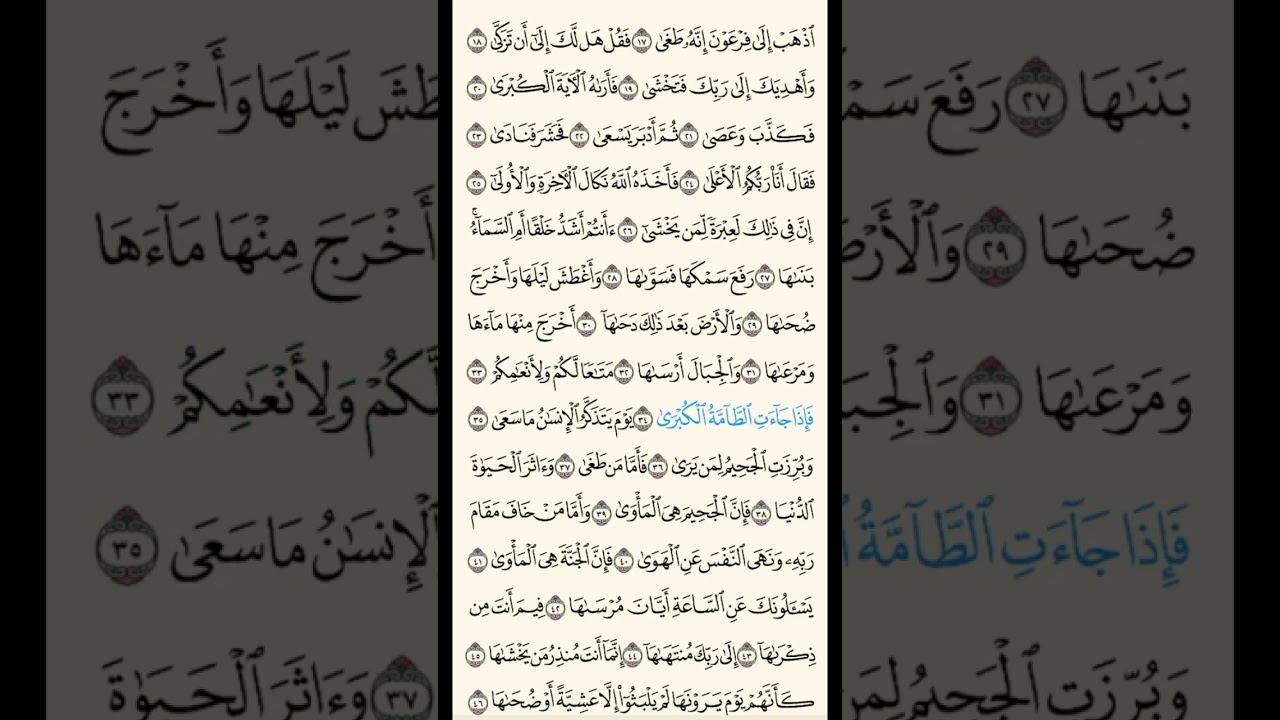 ٱذۡهَبۡ إِلَىٰ فِرۡعَوۡنَ إِنَّهُۥ طَغَىٰ ١٧ فَقُلۡ هَل لَّكَ إِلَىٰٓ أَن تَزَكَّىٰ ١٨
وَأَهۡدِيَكَ إِلَىٰ رَبِّكَ فَتَخۡشَىٰ ١٩ فَأَرَىٰهُ ٱلۡأٓيَةَ ٱلۡكُبۡرَىٰ ٢٠
فَكَذَّبَ وَعَصَىٰ ٢١ ثُمَّ أَدۡبَرَ يَسۡعَىٰ ٢٢ فَحَشَرَ فَنَادَىٰ ٢٣
فَقَالَ أَنَا۠ رَبُّكُمُ ٱلۡأَعۡلَىٰ ٢٤ فَأَخَذَهُ ٱللَّهُ نَكَالَ ٱلۡأٓخِرَةِ وَٱلۡأُولَىٰٓ ٢٥
إِنَّ فِي ذَٰلِكَ لَعِبۡرَةٗ لِّمَن يَخۡشَىٰٓ ٢٦ ءَأَنتُمۡ أَشَدُّ خَلۡقًا أَمِ ٱلسَّمَآءُۚ
بَنَىٰهَا ٢٧ رَفَعَ سَمۡكَهَا فَسَوَّىٰهَا ٢٨ وَأَغۡطَشَ لَيۡلَهَا وَأَخۡرَجَ
ضُحَىٰهَا ٢٩ وَٱلۡأَرۡضَ بَعۡدَ ذَٰلِكَ دَحَىٰهَآ ٣٠ أَخۡرَجَ مِنۡهَا مَآءَهَا
وَمَرۡعَىٰهَا ٣١ وَٱلۡجِبَالَ أَرۡسَىٰهَا ٣٢ مَتَٰعٗا لَّكُمۡ وَلِأَنۡعَٰمِكُمۡ ٣٣
فَإِذَا جَآءَتِ ٱلطَّآمَّةُ ٱلۡكُبۡرَىٰ ٣٤ يَوۡمَ يَتَذَكَّرُ ٱلۡإِنسَٰنُ مَا سَعَىٰ ٣٥
وَبُرِّزَتِ ٱلۡجَحِيمُ لِمَن يَرَىٰ ٣٦ فَأَمَّا مَن طَغَىٰ ٣٧ وَءَاثَرَ ٱلۡحَيَوٰةَ
ٱلدُّنۡيَا ٣٨ فَإِنَّ ٱلۡجَحِيمَ هِيَ ٱلۡمَأۡوَىٰ ٣٩ وَأَمَّا مَنۡ خَافَ مَقَامَ
رَبِّهِۦ وَنَهَى ٱلنَّفۡسَ عَنِ ٱلۡهَوَىٰ ٤٠ فَإِنَّ ٱلۡجَنَّةَ هِيَ ٱلۡمَأۡوَىٰ ٤١
يَسۡـَٔلُونَكَ عَنِ ٱلسَّاعَةِ أَيَّانَ مُرۡسَىٰهَا ٤٢ فِيمَ أَنتَ مِن
ذِكۡرَىٰهَآ ٤٣ إِلَىٰ رَبِّكَ مُنتَهَىٰهَآ ٤٤ إِنَّمَآ أَنتَ مُنذِرُ مَن يَخۡشَىٰهَا ٤٥
كَأَنَّهُمۡ يَوۡمَ يَرَوۡنَهَا لَمۡ يَلۡبَثُوٓاْ إِلَّا عَشِيَّةً أَوۡ ضُحَىٰهَا ٤٦